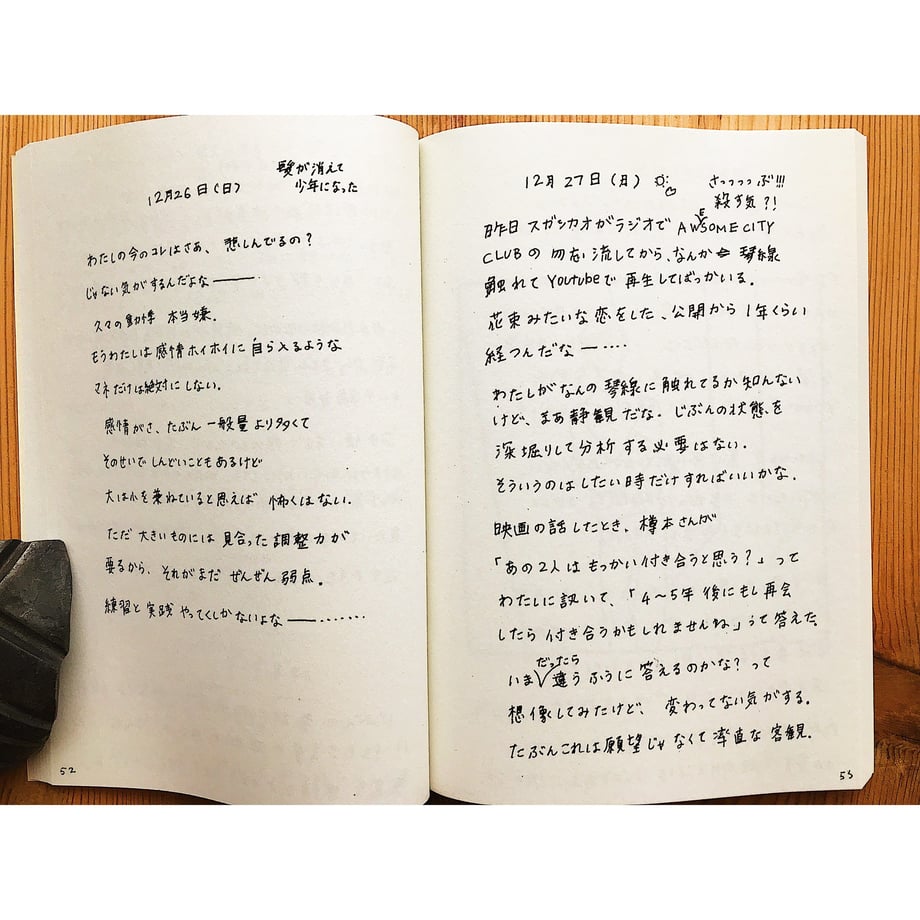 12月26日(日)
髪が消えて
少年になった
わたしの今のコレはさあ、悲しんでるの?
じゃない気がするんだよな――
クマの動悸 本当嫌.
もうわたしは感情ホイホイに自ら入るような
マネだけは絶対にしない.
感情がさ、たぶん一般量より多くて
そのせいでしんどいこともあるけど
大は小を兼ねていると思えば 怖くはない.
ただ 大きいものには 見合った調整力が
要るから、それがまだ ぜんぜん 弱点.
練習と実践 やってくしかないよな――‥‥‥‥
52
12月27日(月)
さっっっっぶ!!!
殺す気?!
昨日 スガシカオがラジオで AWESOME CITY
CLUBの 勿忘 流してから、なんか 琴線
触れて Youtubeで 再生してばっかいる.
花束みたいな恋をした、公開から1年くらい
経つんだな―‥‥
わたしがなんの琴線に触れてるか知んない
けど、まあ静観だな. じぶんの状態を
深堀りして分析する必要はない.
そういうのはしたい時だけすればいいかな.
映画の話したとき、樽本さんが
「あの2人は もっかい付き合うと思う?」って
わたしに訊いて、「4〜5年後にもし再会
したら付き合うかもしれませんね」って答えた.
いまだったら違うふうに答えるのかな?って
想像してみたけど、変わってない気がする.
たぶんこれは願望じゃなくて率直な客観.
53